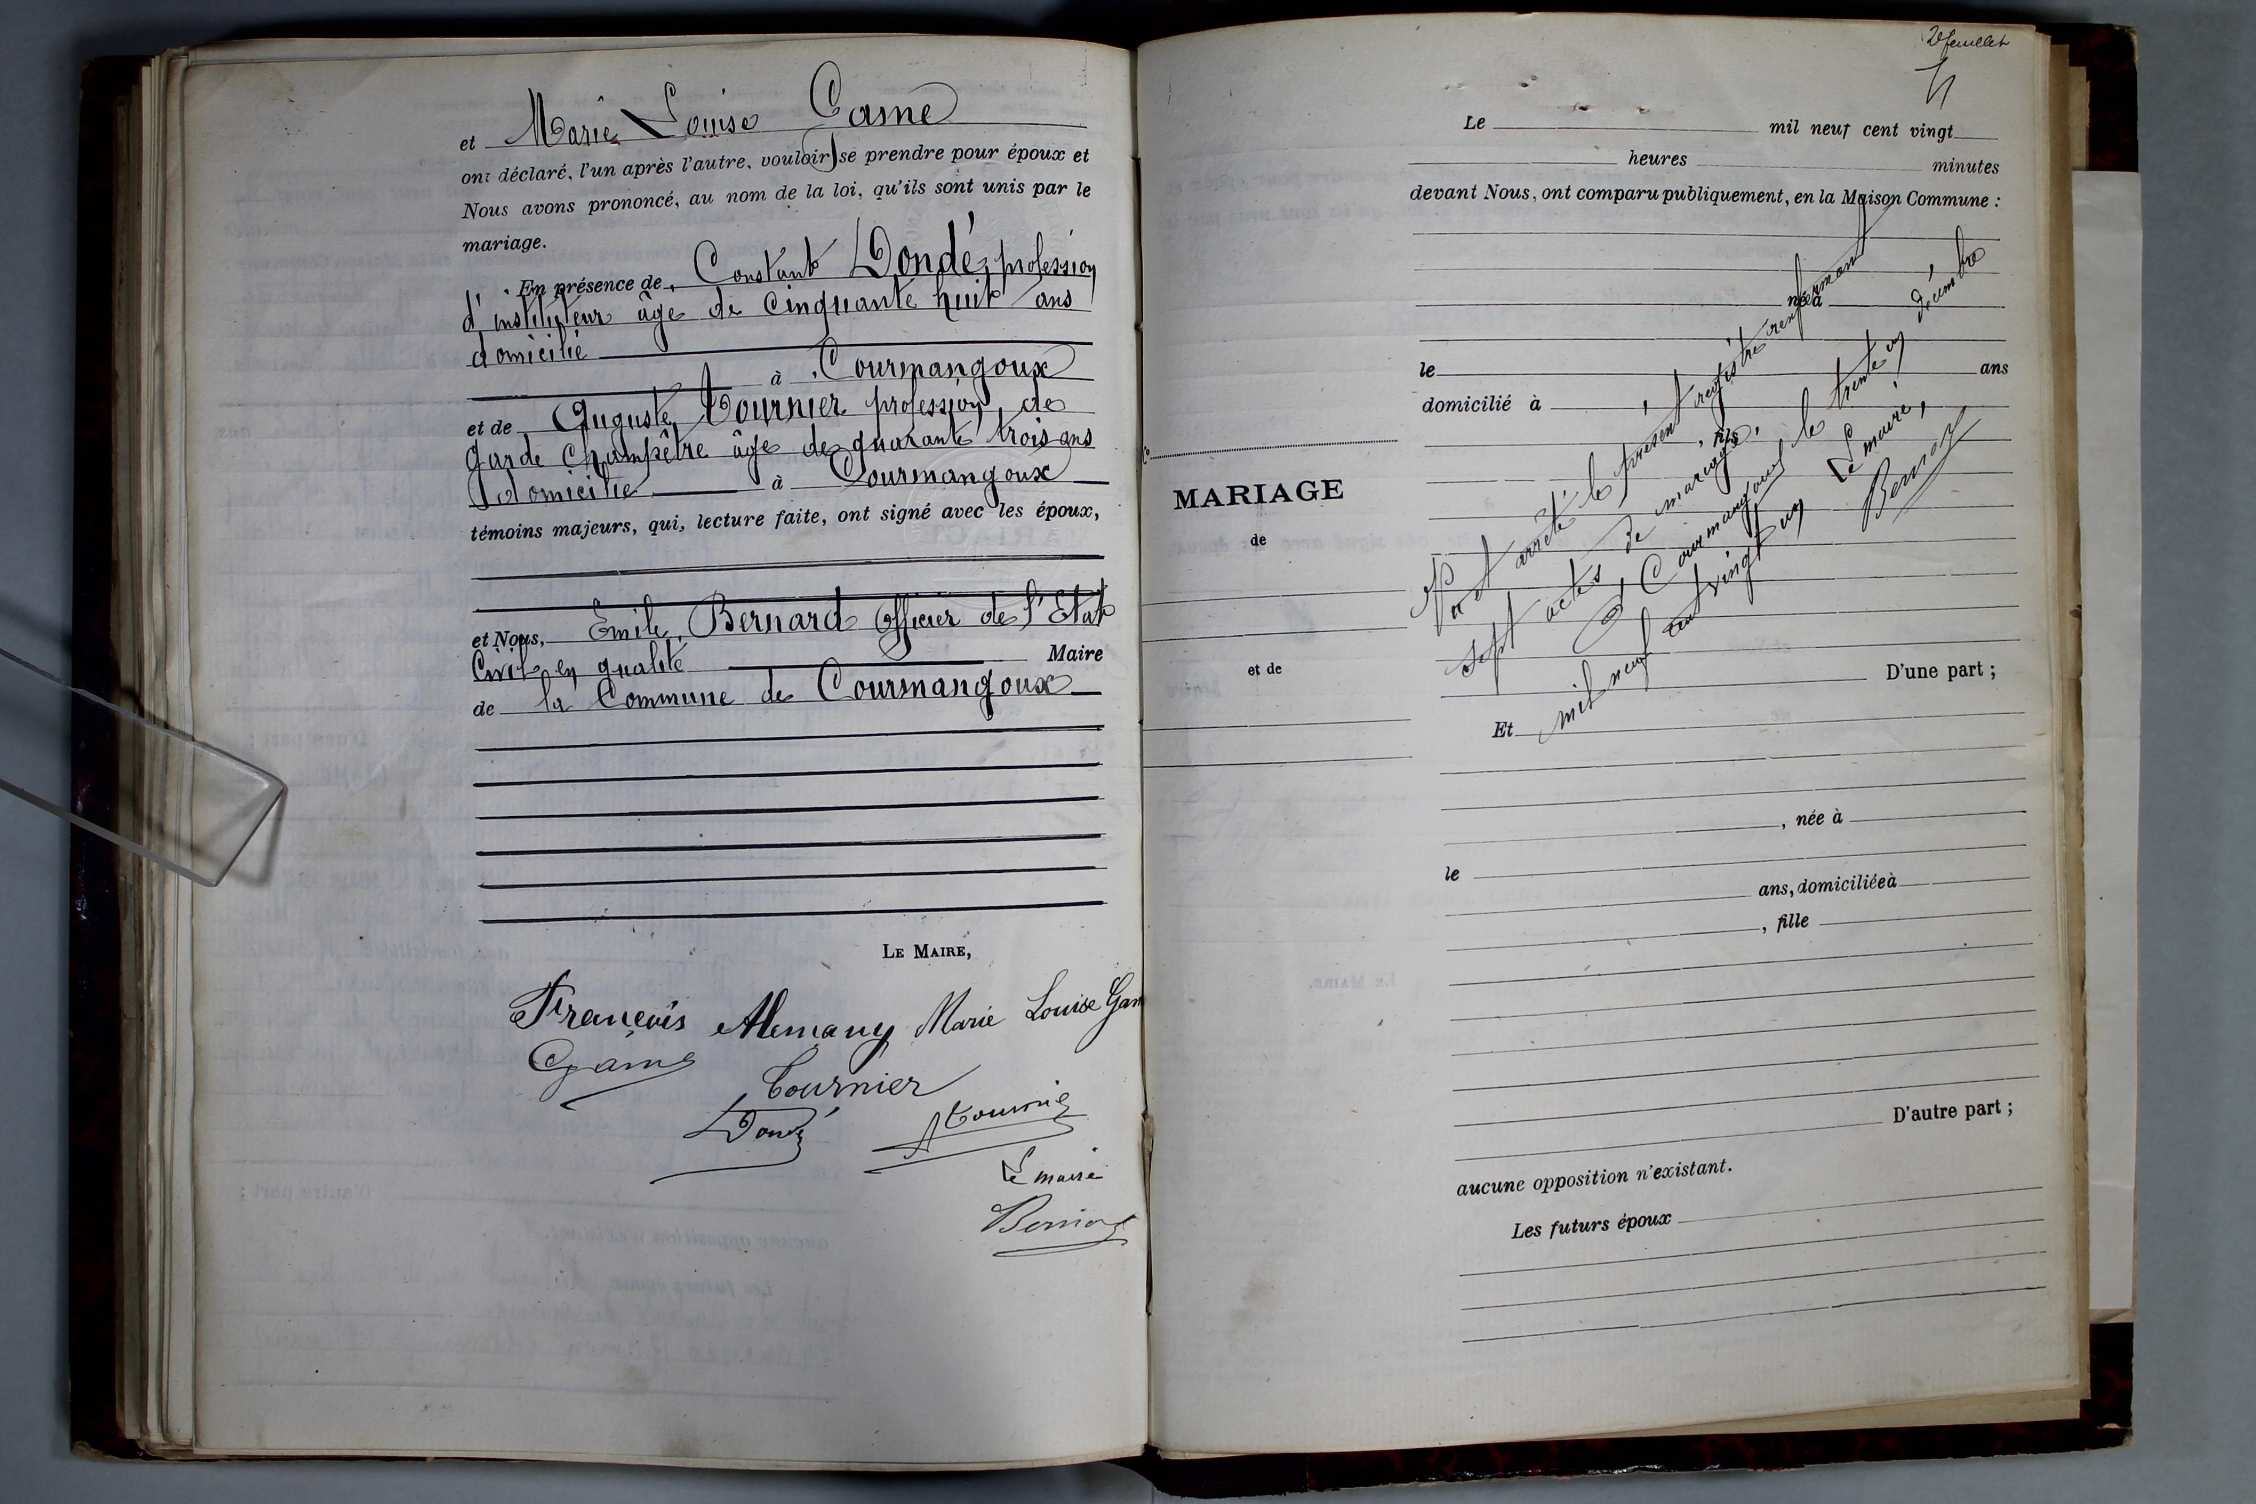 et Marie Louise Game
ont déclaré, l'un après l'autre, vouloir se prendre pour époux et
Nous avons prononcé, au nom de la loi, qu'ils sont unis par le
mariage.
En présence de Constant Dondé, profession
d'instituteur âge de cinquante huit ans
domicilié
à Courmangoux
et de Auguste Tournier profession de
garde champêtre âge de quarante trois ans
domicilié à Courmangoux
témoins majeurs, qui, lecture faite, ont signé avec les époux,
et Nous, Emile Bernard Officier de l'Etat
Civil en qualité Maire
de la Commune de Courmangoux
LE MAIRE,
François Alemany Marie Louise Gam
Game
Tournier
Dondé
A Tournier
Le maire
Bernard
2e feuillet
Le mil neuf cent vingt
heures minutes
devant Nous, ont comparu publiquement, en la Maison Commune :
né à
le ans
domicilié à
, fils
MARIAGE
de
et de
Nous arrêté le présent registre renfermant
sept actes de mariage.
A Courmangoux le trente un décembre
mil neuf cent vingt un
Le maire,
Bernard
D'une part ;
Et
, née à
le
ans, domiciliée à
, fille
D'autre part ;
aucune opposition n'existant.
Les futurs époux